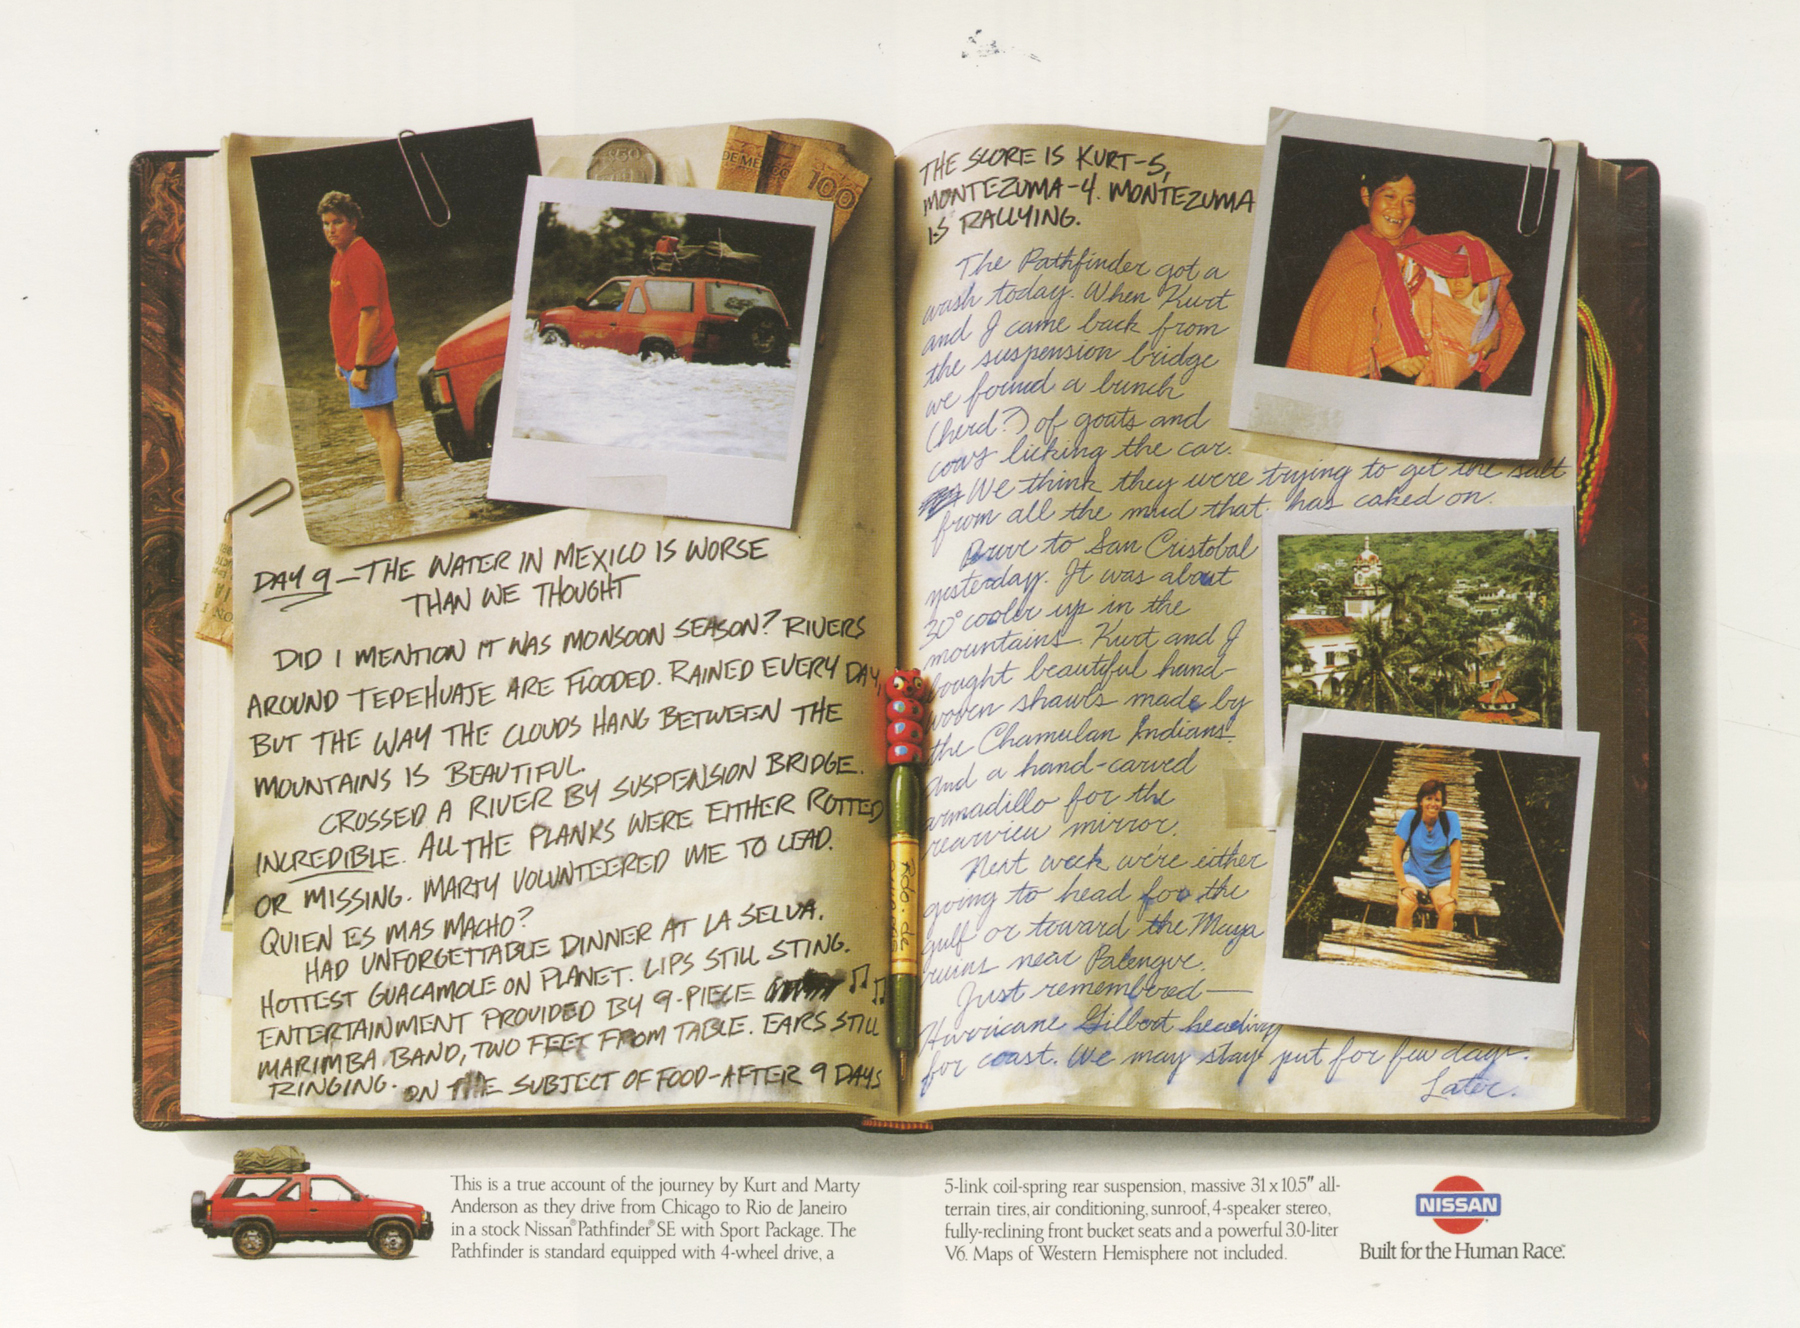 DAY 9—THE WATER IN MEXICO IS WORSE
THAN WE THOUGHT
DID I MENTION IT WAS MONSOON SEASON? RIVERS
AROUND TEPEHUAJE ARE FLOODED. RAINED EVERY DAY,
BUT THE WAY THE CLOUDS HANG BETWEEN THE
MOUNTAINS IS BEAUTIFUL.
CROSSED A RIVER BY SUSPENSION BRIDGE.
INCREDIBLE. ALL THE PLANKS WERE EITHER ROTTED
OR MISSING. MARTY VOLUNTEERED ME TO LEAD.
QUIEN ES MAS MACHO?
HAD UNFORGETTABLE DINNER AT LA SELVA.
HOTTEST GUACAMOLE ON PLANET. LIPS STILL STING.
ENTERTAINMENT PROVIDED BY 9-PIECE
MARIMBA BAND, TWO FEET FROM TABLE. EARS STILL
RINGING.
ON THE SUBJECT OF FOOD-AFTER 9 DAYS
$50
DE MEXICO
100
THE SCORE IS KURT-5,
MONTEZUMA-4. MONTEZUMA
IS RALLYING.
The Pathfinder got a
wash today. When Kurt
and I came back from
the suspension bridge
we found a bunch
(herd?) of goats and
cows licking the car.
We think they were trying to get the salt
from all the mud that has caked on.
Drove to San Cristobal
yesterday. It was about
30° cooler up in the
mountains. Kurt and I
bought beautiful hand-
woven shawls made by
the Chamulan Indians.
And a hand-carved
armadillo for the
rearview mirror.
Next week we're either
going to head for the
gulf or toward the Maya
ruins near Palenque.
Just remembered—
Hurricane Gilbert heading
for coast. We may stay put for few days.
Later.
This is a true account of the journey by Kurt and Marty
Anderson as they drive from Chicago to Rio de Janeiro
in a stock Nissan® Pathfinder® SE with Sport Package. The
Pathfinder is standard equipped with 4-wheel drive, a
5-link coil-spring rear suspension, massive 31 x 10.5" all-
terrain tires, air conditioning, sunroof, 4-speaker stereo,
fully-reclining front bucket seats and a powerful 3.0-liter
V6. Maps of Western Hemisphere not included.
NISSAN®
Built for the Human Race.℠